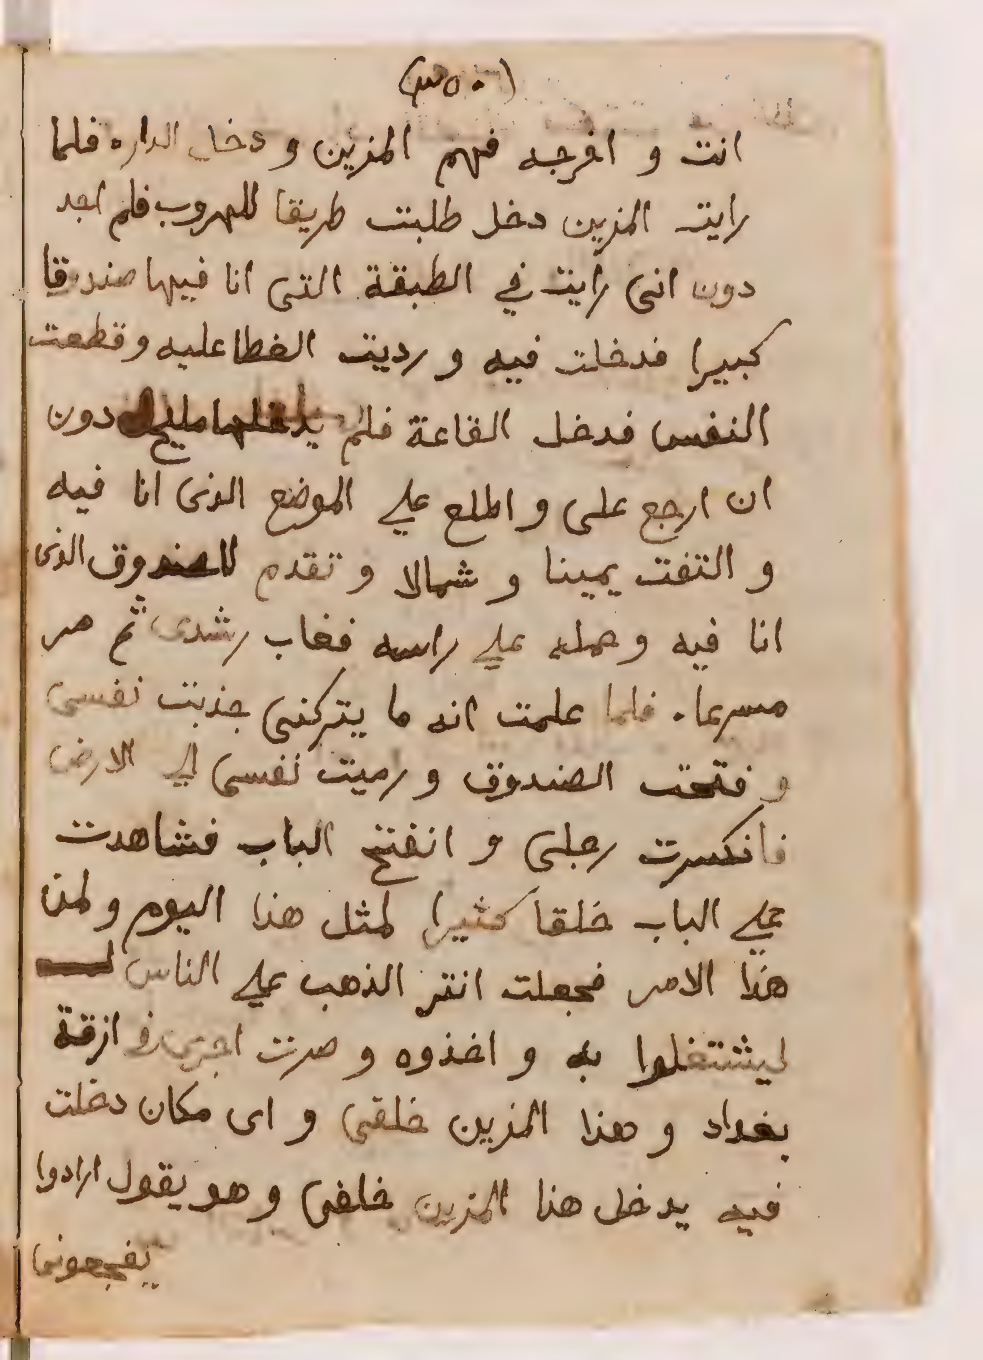 انت و افرجه فهم المزين و دخل الداره فلما
رايت المزين دخل طلبت طريقا للهروب فلم اجد
دون انى رايت في الطبقة التى انا فيها صندوقا
كبيرا فدخلت فيه و رديت الغطا عليه و قطعت
النفس فدخل القاعة فلم دون
ان ارجع على و اطلع علي الموضع الذى انا فيه
و التفت يمينا و شمالا و تقدم للصندوق الذى
انا فيه و حمله علي راسه فغاب رشدى ثم مر
مسرعا. فلما علمت انه ما يتركنى جذبت نفسى
و فتحت الصندوق و رميت نفسى الي الارض
فانكسرت رجلى و انفتح الباب فشاهدت
علي الباب خلقا كثيرا لمثل هذا اليوم و
هذا الامر فجعلت انثر الذهب علي الناس
ليشتغلوا به و اخذوه و صرت اجرى في ازقة
بغداد و هذا المزين خلفى و اى مكان دخلت
فيه يدخل هذا المزين خلفى و هو يقول ارادوا
يفجعونى